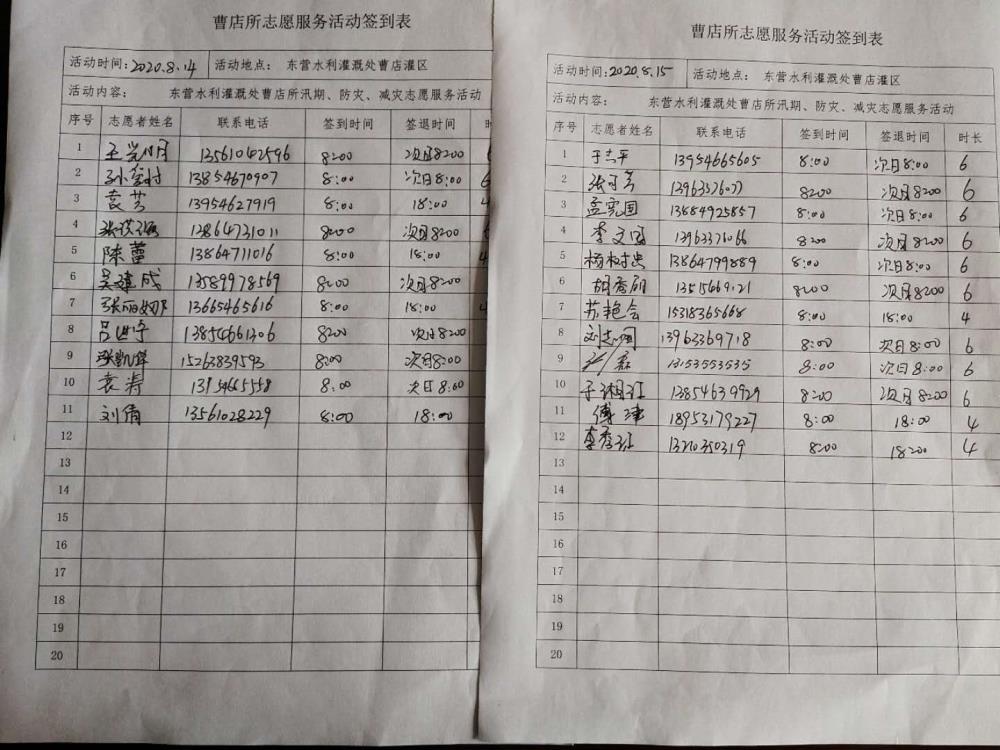 曹店所志愿服务活动签到表
活动时间:2020.8.14 活动地点: 东营水利灌溉处曹店灌区
活动内容: 东营水利灌溉处曹店所汛期、防灾、减灾志愿服务活动
序号 志愿者姓名 联系电话 签到时间 签退时间
1 13561042596 8:00 次日8:00
2 13854670907 8:00 次日8:00
3 袁芳 13954627919 8:00 18:00
4 13864731011 8:00 次日8:00
5 陈蕾 13864711016 8:00 18:00
6 吴建成 13589978569 8:00 次日8:00
7 张丽娜 13665465616 8:00 18:00
8 吕世宁 13854661306 8:00 次日8:00
9 张凯 15263839593 8:00 次日8:00
10 袁涛 8:00 次日8:00
11 刘倩 13561028229 8:00 18:00
12
13
14
15
16
17
18
19
20
曹店所志愿服务活动签到表
活动时间:2020.8.15 活动地点: 东营水利灌溉处曹店灌区
活动内容: 东营水利灌溉处曹店所汛期、防灾、减灾志愿服务活动
序号 志愿者姓名 联系电话 签到时间 签退时间 时长
1 于志平 13954665605 8:00 次日8:00 6
2 8:00 次日8:00 6
3 孟宪国 13884925857 8:00 次日8:00 6
4 李文国 13963376066 8:00 次日8:00 6
5 杨树忠 13864799889 8:00 次日8:00 6
6 胡秀 13515469121 8:00 次日8:00 6
7 苏艳会 15318365668 8:00 18:00 4
8 刘志刚 13963369718 8:00 次日8:00 6
9 13153553535 8:00 次日8:00 6
10 于湘江 13854639929 8:00 次日8:00 6
11 傅津 18953179227 8:00 18:00 4
12 李秀 13210350319 8:00 18:00 4
13
14
15
16
17
18
19
20